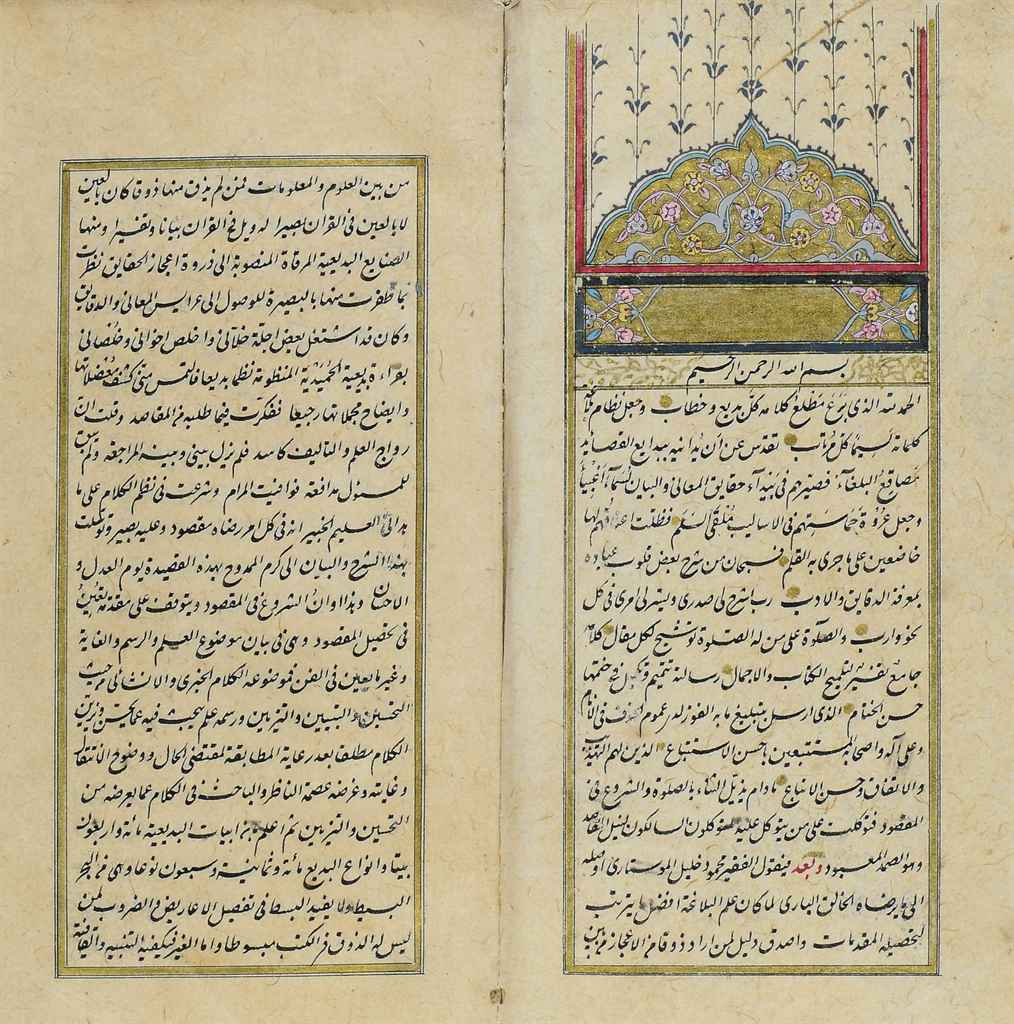 بسم الله الرحمن الرحيم
الحمد لله الذى برع مطلع كلامه كل بديع وخطاب وجعل نظام
كلماته نسيما كل مراتب تقدس عن أن يدانيه ببدايع القصايد
مصاقع البلغاء فصيرهم فى بيداء حقايق المعانى والبيان
وجعل عروة حماستهم فى الاساليب ملقى السلم فظلت اعناقهم لها
خاضعين على ما جرى به القلم فسبحان من شرح بعض قلوب عباده
بمعرفة الدقايق والادب رب اشرح لى صدرى ويسر لى امرى فى كل
نحو وارب والصلوة على من له الصلوة توشيح لكل مقال كلام
جامع تفسير لتلميح الكتاب والاجمال رسالته تتميم وتكميل ختمها
حسن الختام الذى ارسل بتبليغ ما به الفوز لدى عموم فى الانام
وعلى آله واصحابه المستتبعين باحسن الاستتباع الذين لهم التهذيب
والاتفاق وحسن الاتباع مادام يذيل الثناء بالصلوة والشروع فى
المقصود فتوكلت على من يتوكل عليه المتوكلون السالكون لنيل المقاصد
وهو الصمد المعبود وبعد فيقول الفقير محمود خليل الموستارى اوصله
الى ما يرضاه الخالق البارى لما كان علم البلاغة افضل ما يترتب
لتحصيله المقدمات واصدق دليل لمن اراد ذوقا من الاعجاز من بين
من بين العلوم والمعلومات فمن لم يذق منها ذوقا كان بالعين
لا بالعين فى القران بصيرا له ويل فى القران بيانا وتفسيرا ومنها
الصنايع البديعية المرقاة المنصوبة الى ذروة اعجاز الحقايق نظرت
بما ظفرت منها بالبصيرة للوصول الى عرايس المعانى والدقايق
وكان قد اشتغل بعض اجلة خلانى واخلص اخوانى وخلصانى
بقراءة بديعية الحميدية المنظومة نظما بديعا فالتمس منى كشف معضلاتها
وايضاح مجملاتها رجيعا ففكرت فيما طلبه من المقاصد وقلت ان
رواج العلم والتاليف كاسد فلم يزل بينى وبينه المراجعة ولم يبق
للمسئول مدافعة فوافيت المرام وشرعت فى نظم الكلام على ما
هدانى العليم الخبير انه فى كل امر رضاه مقصود وعليه بصير وتوسلت
بهذا الشرح والبيان الى كرم الممدوح بهذه القصيدة يوم العدل و
الاحسان وهذا اوان الشروع فى المقصود ويتوقف على مقدمة تعين
فى تحصيل المقصود وهى فى بيان موضوع العلم والرسم والغاية
وغيرها يعين فى الفن فموضوعه الكلام الخبرى والانشائى من حيث
التحسين التبيين والتزيين ورسمه علم يبحث فيه عما يحسن ويزين
الكلام مطلقا بعد رعاية المطابقة لمقتضى الحال ووضوح الانتقال
وغايته وغرضه عصمة الناظر والباحث فى الكلام عما يعرضه من
التحسين والتزيين ثم اعلم ان ابيات البديعية مائة واربعون
بيتا وانواع البديع مائة وثمانية وسبعون نوعا وهى من البحر
البسيط ولا يفيد البسط فى تفصيل الاعاريض والضروب لمن
ليس له الذوق من الكتب مبسوطا واما الغير فيكفيه التنبيه والقافية